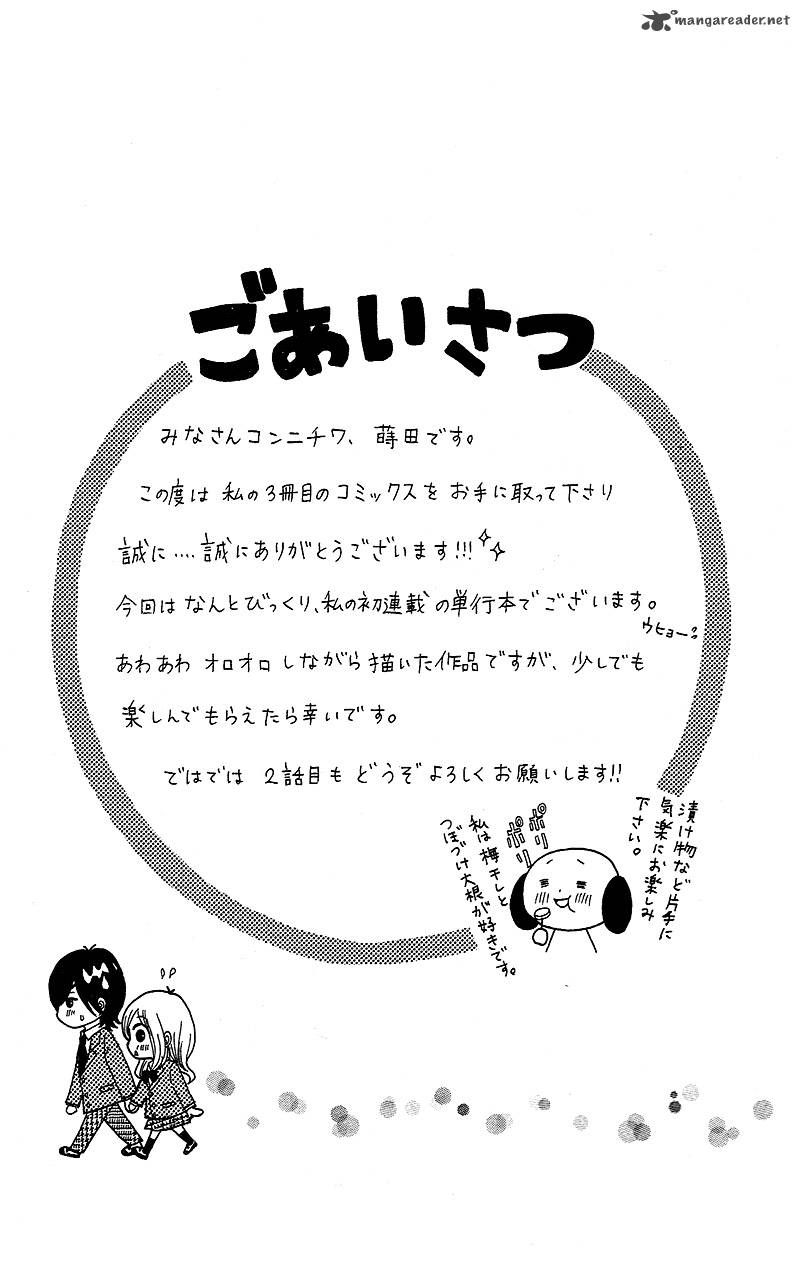 mangareader.net
ごあいさつ
みなさんコンニチワ、蒔田です。
この度は 私の3冊目のコミックスを お手に取って下さり
誠に....誠にありがとうございます!!!
今回は なんとびっくり、私の初連載の単行本でございます。
ウヒョー
あわあわ オロオロ しながら描いた作品ですが、少しでも
楽しんでもらえたら幸いです。
ではでは 2話目も どうぞよろしくお願いします!!
漬け物など片手に
気楽にお楽しみ
下さい。
ポリ
ポリ
私は梅干しと
つぼづけ大根が好きです。